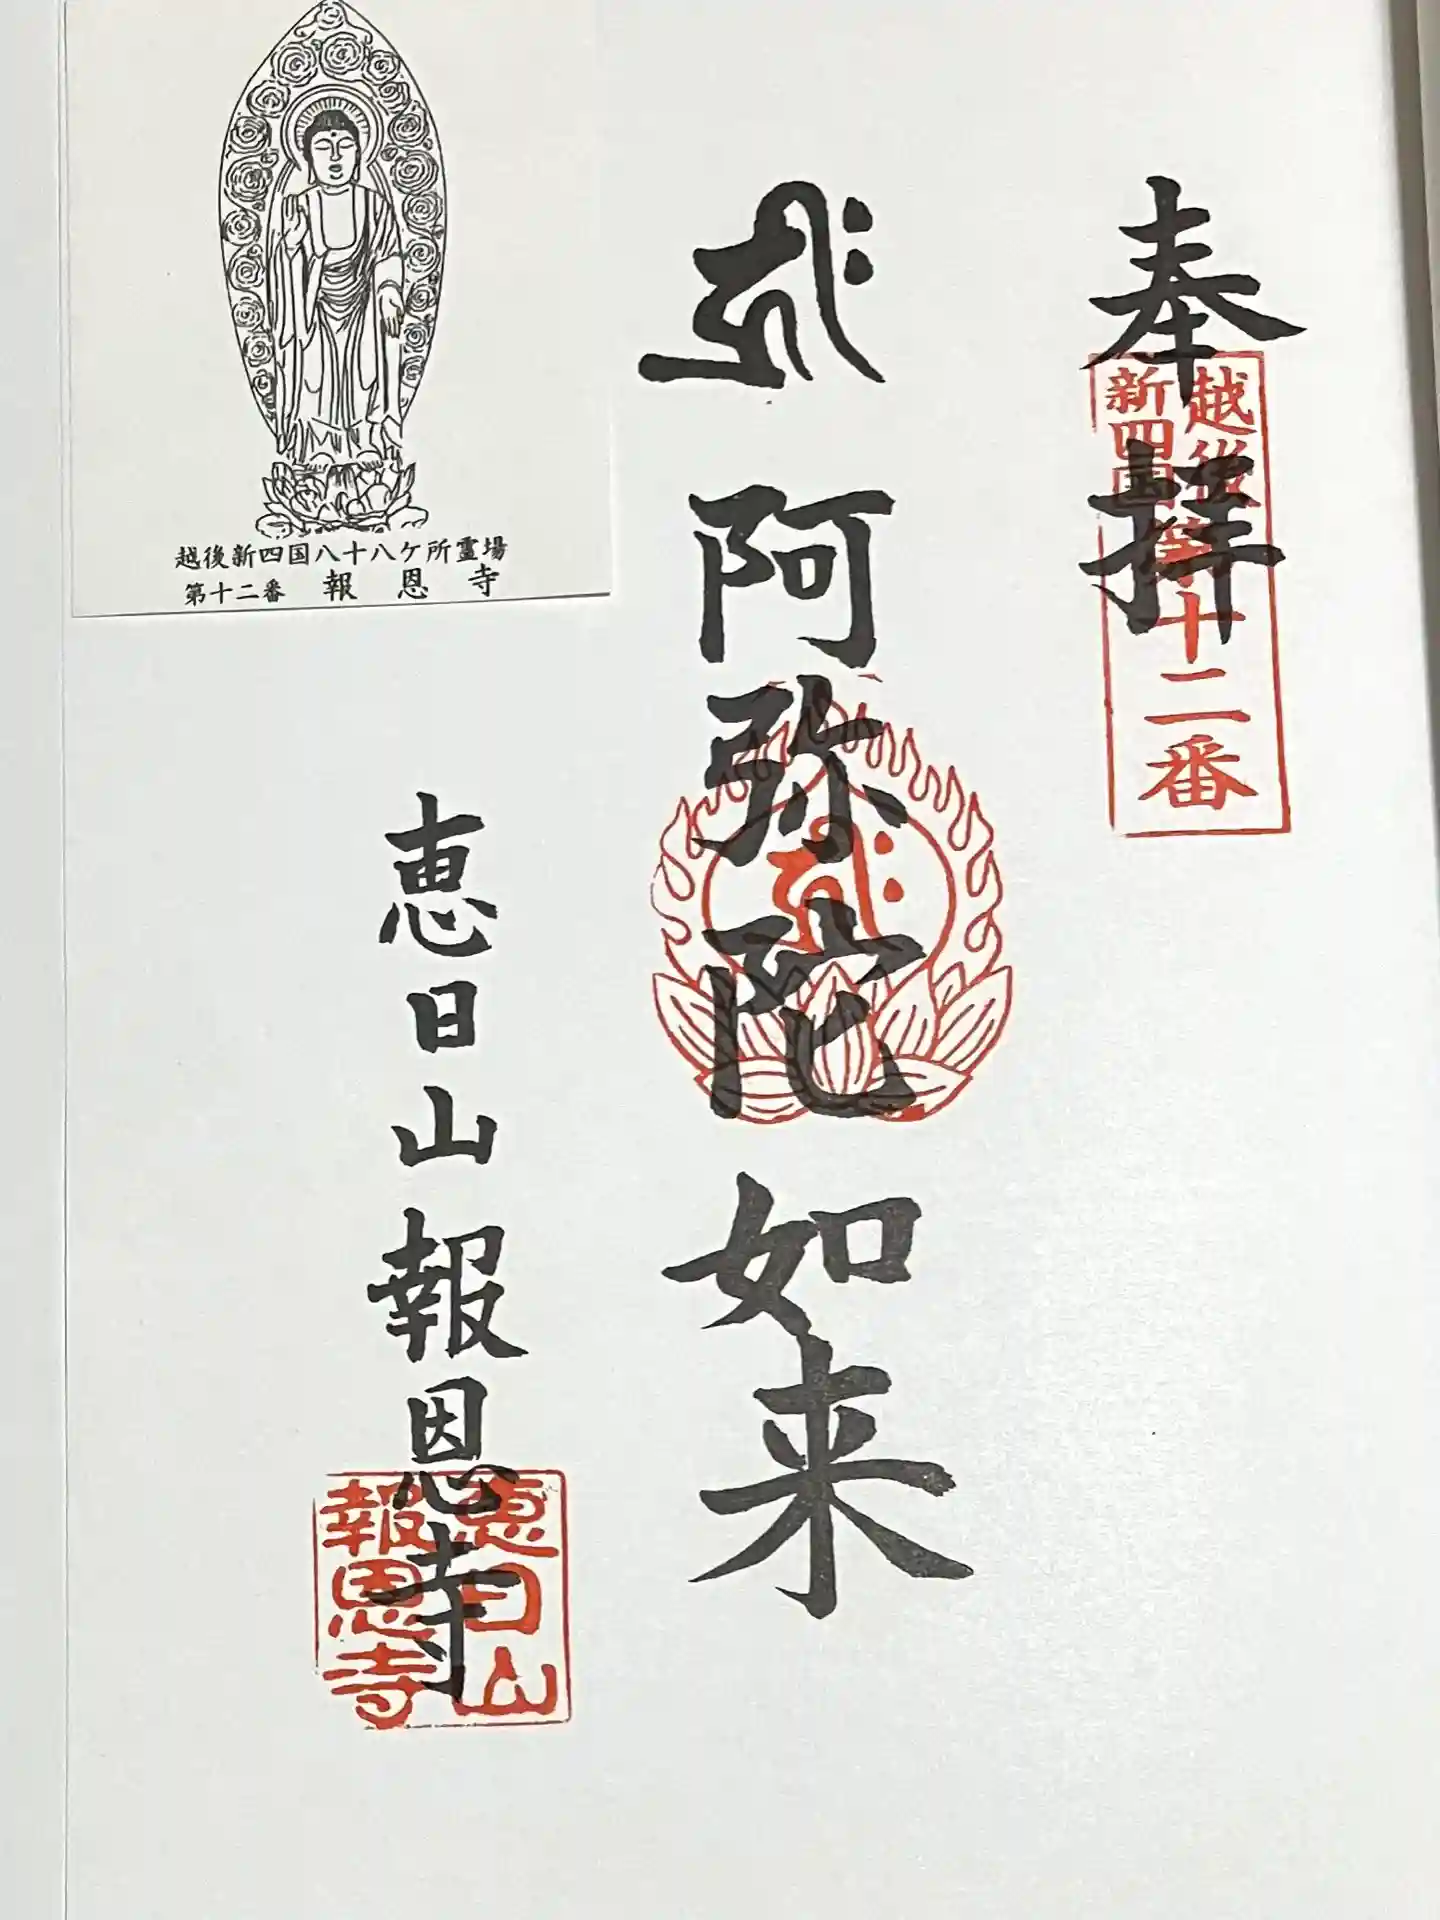 奉拝
越後
新四国
第十二番
𑖮𑖿𑖨𑖱𑖾
阿弥陀如来
𑖮𑖿𑖨𑖱𑖾
恵日山報恩寺
恵日山
報恩寺
越後新四国八十八ケ所霊場
第十二番 報恩寺